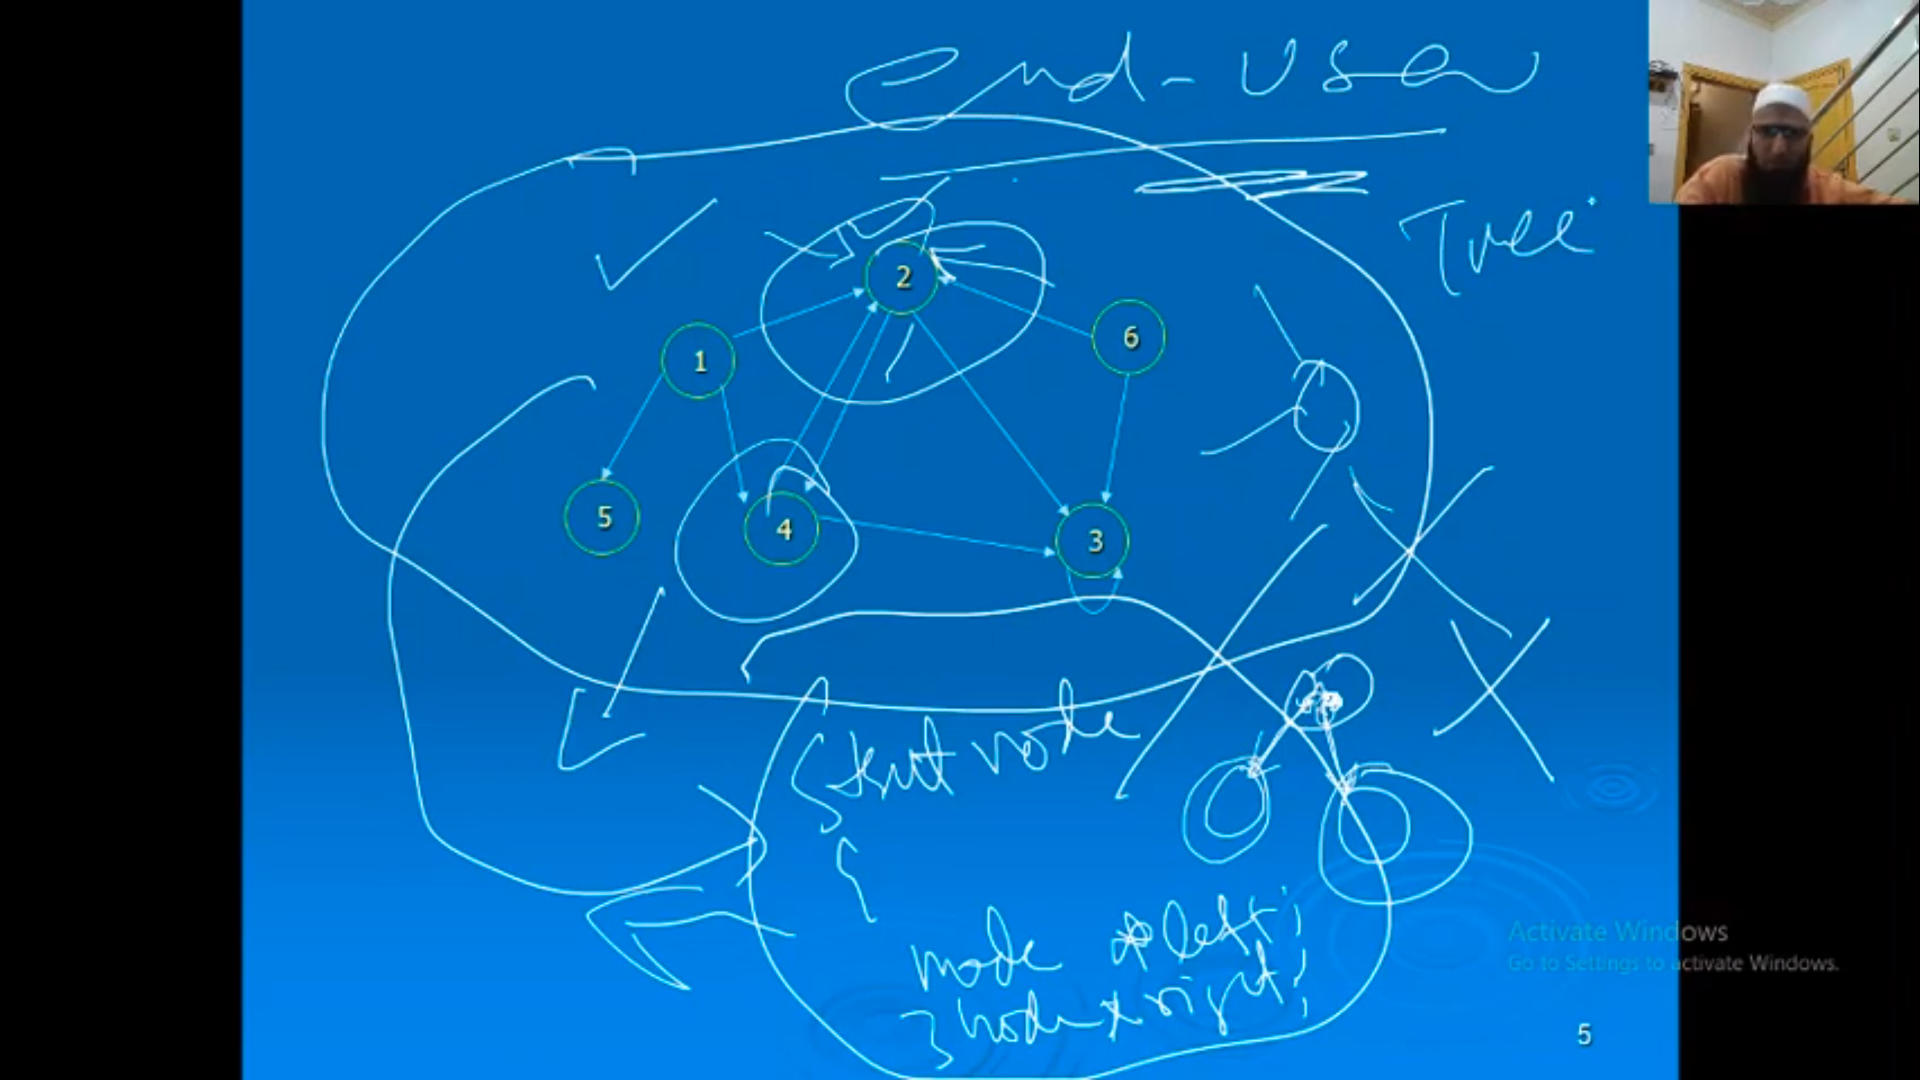 end-user
Tree
2
6
1
5
4
3
Struct node
{
node *left;
node *right;
}
Activate Windows
Go to Settings to activate Windows.
5